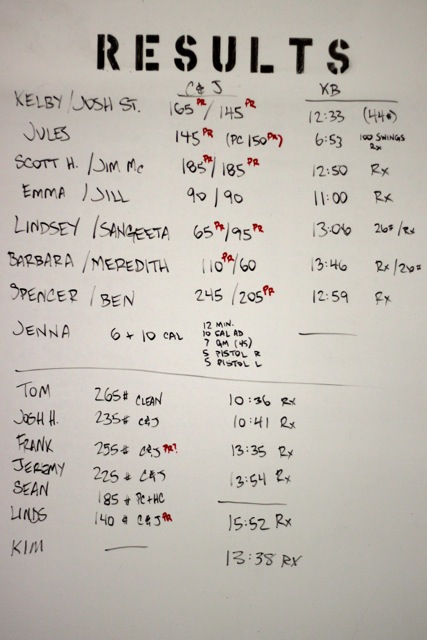 RESULTS
C&J KB
KELBY/JOSH ST. 165 PR/145 PR 12:33 (44#)
JULES 145 PR (PC 150 PR) 6:53 100 SWINGS RX
SCOTT H./JIM MC 185 PR/185 PR 12:50 RX
EMMA/JILL 90/90 11:00 RX
LINDSEY/SANGEETA 65 PR/95 PR 13:06 26#/RX
BARBARA/MEREDITH 110 PR/60 13:46 RX/26#
SPENCER/BEN 245/205 PR 12:59 RX
JENNA 6 + 10 CAL
12 MIN.
10 CAL AD
7 GM (45)
5 PISTOL R
5 PISTOL L
TOM 265# CLEAN 10:36 RX
JOSH H. 235# C&J 10:41 RX
FRANK 255# C&J PR? 13:35 RX
JEREMY 225# C&J 13:54 RX
SEAN 185# PC+HC
LINDS 140# C&J PR 15:52 RX
KIM 13:38 RX